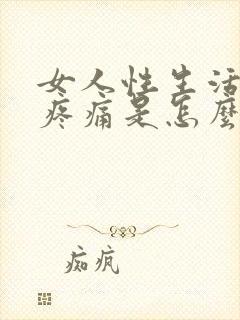 女人性生活
疼痛是怎麼
痴疯